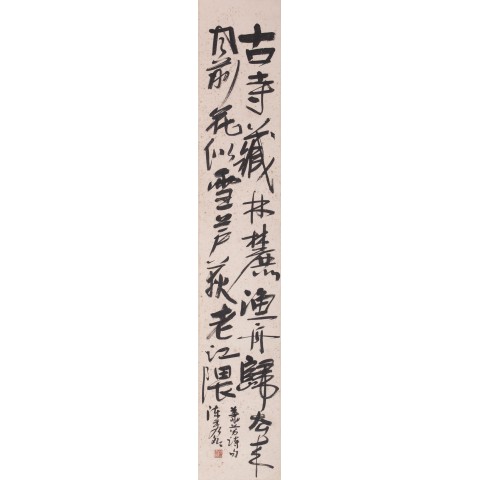 古寺藏林麓渔舟歸去来
风前花似雪芦荻老江隈
诗句
陈